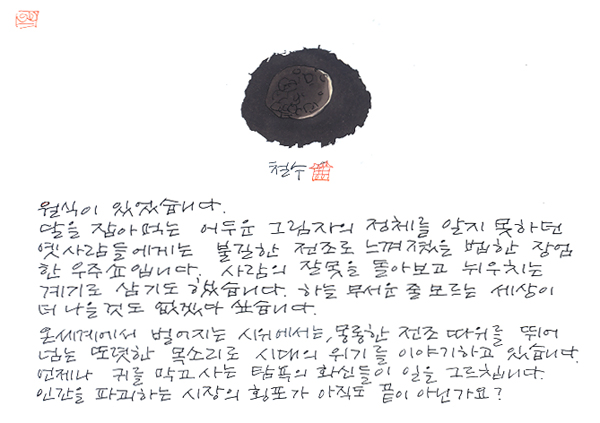 철수
월식이 있었습니다.
달을 잡아먹는 어두운 그림자의 정체를 알지 못하던
옛사람들에게는 불길한 전조로 느껴졌을 법한 장엄
한 우주쇼입니다. 사람의 잘못을 돌아보고 뉘우치는
계기로 삼기도 했습니다. 하늘 무서운 줄 모르는 세상이
더 나을 것도 없겠다 싶습니다.
온세계에서 벌어지는 시위에서는, 몽롱한 전조 따위를 뛰어
넘는 또렷한 목소리로 시대의 위기를 이야기하고 있습니다.
언제나 귀를 막고 사는 탐욕의 화신들이 일을 그르칩니다.
인간을 파괴하는 시장의 횡포가 아직도 끝이 아닌가요?